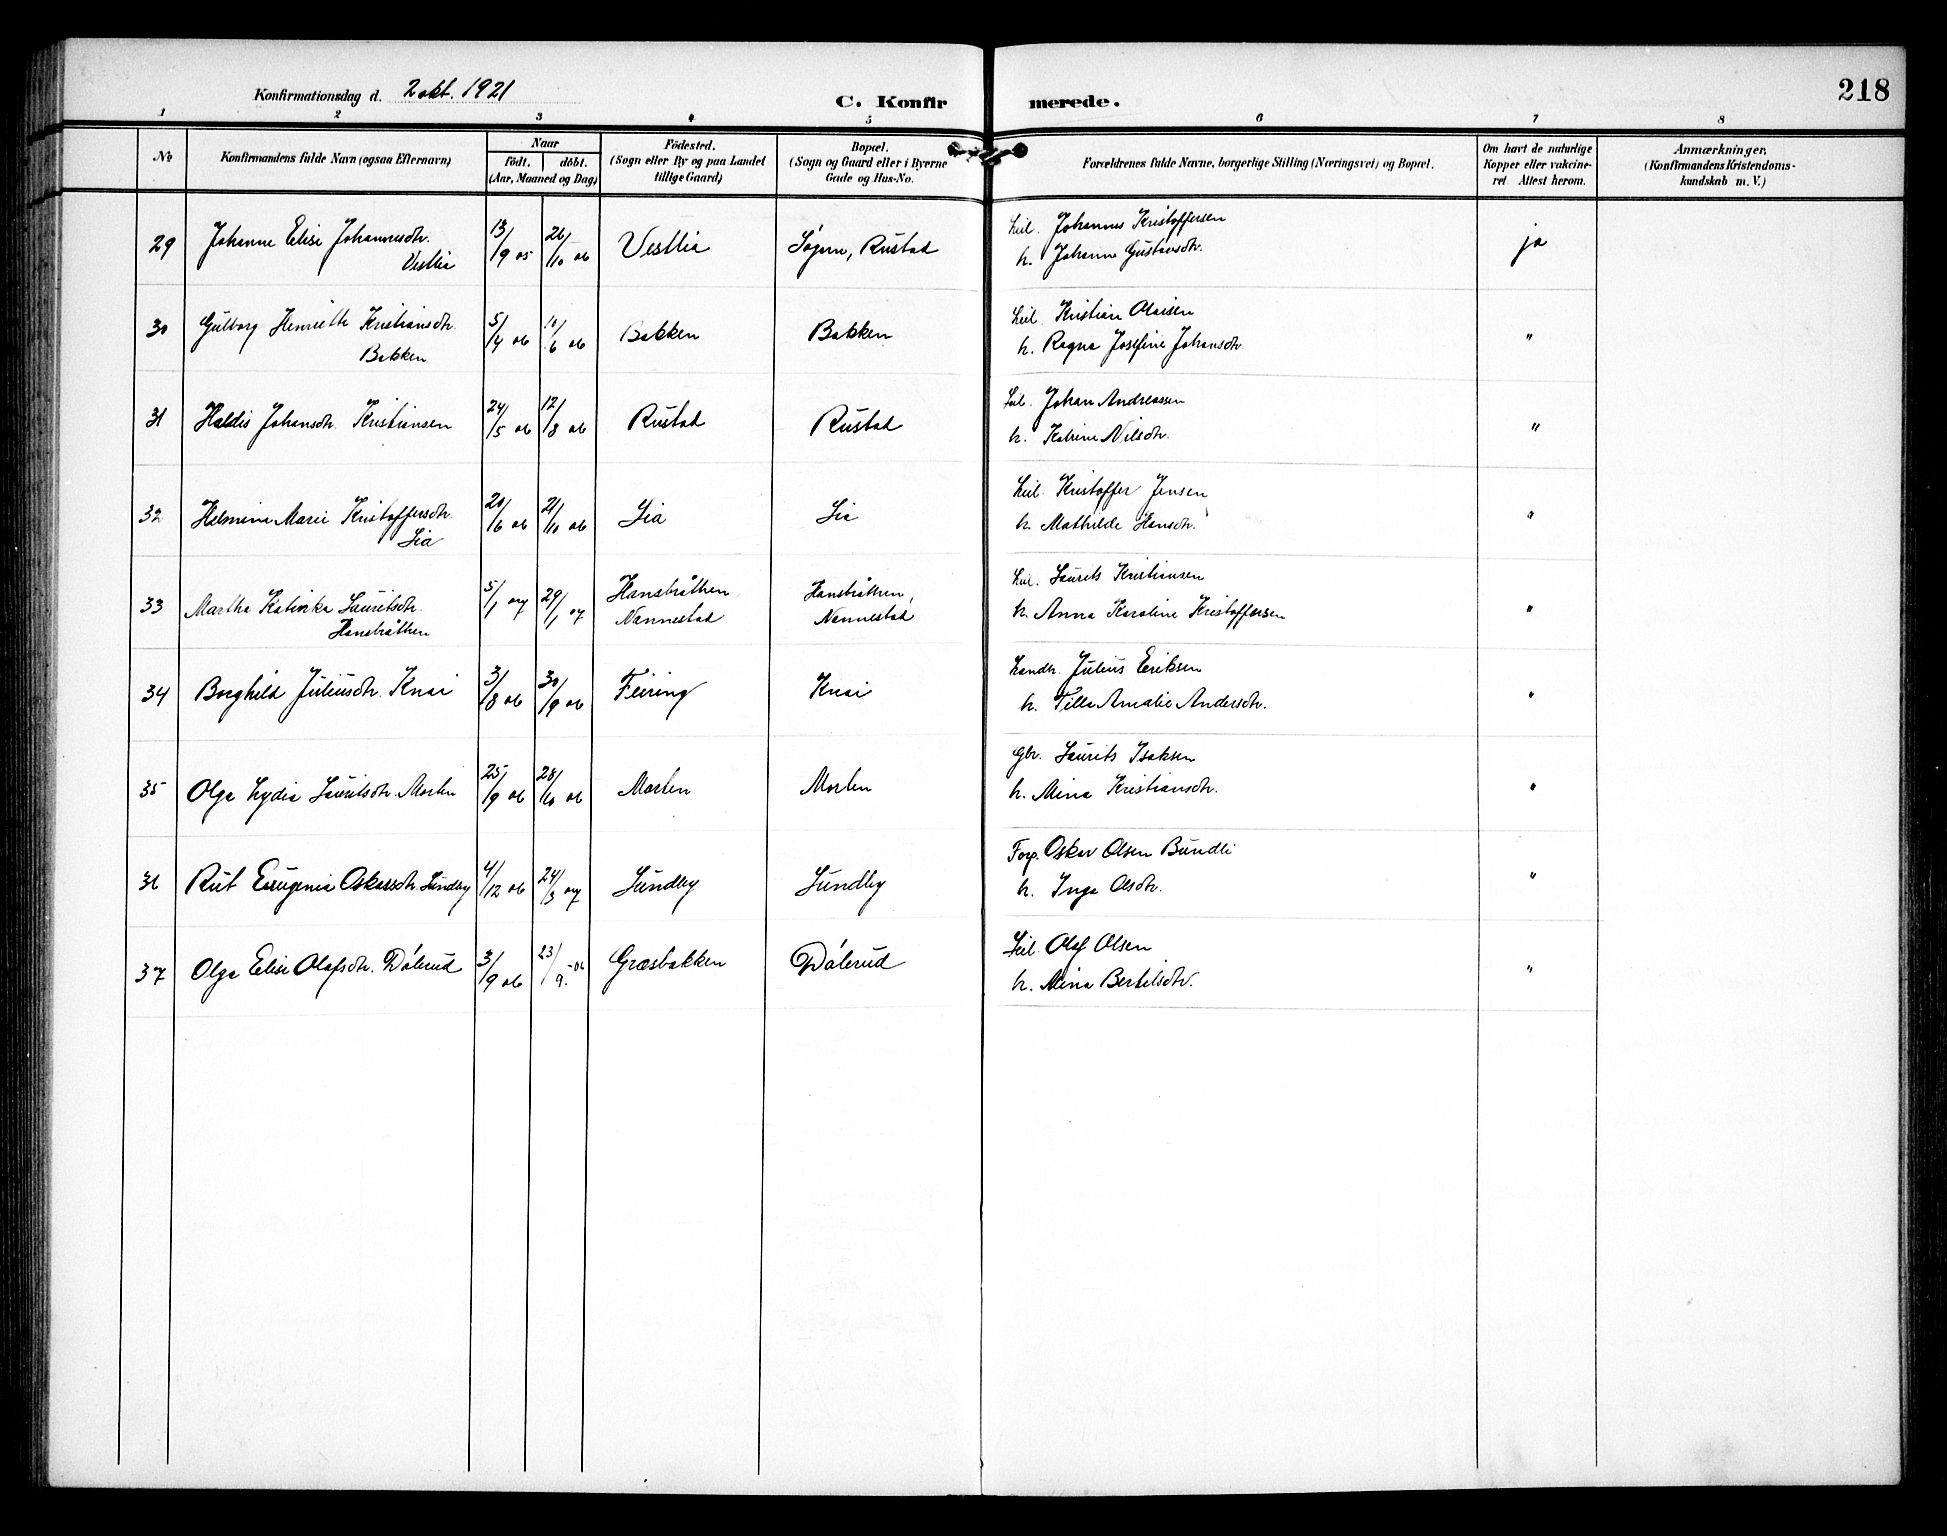 Konfirmationsdag d. 2 okt. 1921
C. Konfirmerede.
218
1 2 3 4 5 6 7 8
No
Konfirmandens fulde Navn (ogsaa Efternavn)
Naar
födt. döbt.
(Aar, Maaned og Dag)
Födested.
(Sogn eller By og paa Landet
tillige Gaard)
Bopæl.
(Sogn og Gaard eller i Byerne
Gade og Hus-No.
Forældrenes fulde Navne, borgerlige Stilling (Næringsvei) og Bopæl.
Om havt de naturlige
Kopper eller vakcine-
ret. Attest herom.
Anmærkninger.
(Konfirmandens Kristendoms-
kundskab m. V.)
29 Johanne Elise Johannesdtr. Vestlia 13/9 05 26/10 06 Vestlia Søgern, Rustad Leil. Johannes Kristoffersen ja
h. Johanne Gustavsdtr.
30 Gulborg Henriette Kristiansdtr. Bakken 5/4 06 10/6 06 Bakken Bakken Leil. Kristian Olaisen "
h. Ragna Josefine Johansdtr.
31 Haldis Johansdtr. Kristiansen 24/5 06 12/8 06 Rustad Rustad Leil. Johan Andreassen "
h. Katrine Nilsdtr.
32 Helmine Marie Kristoffersdtr. Lia 20/6 06 21/10 06 Lia Lia Leil. Kristoffer Jensen "
h. Mathilde Hansdtr.
33 Martha Katinka Lauritsdtr. Hansbråthen 5/1 07 29/1 07 Hansbråthen Nannestad Hansbråthen, Nannestad Leil. Laurits Kristiansen "
h. Anna Karoline Kristoffersen
34 Borghild Juliusdtr. Knai 3/8 06 30/9 06 Feiring Knai Landh. Julius Eriksen "
h. Tilla Amalie Andersdtr.
35 Olga Lydia Lauritsdtr. Morten 25/9 06 28/10 06 Morten Morten Gbr. Laurits Isaksen "
h. Mina Kristiansdtr.
36 Rut Eeugenia Oskarsdtr. Sundby 4/12 06 24/3 07 Sundby Sundby Forp. Oskar Olsen Bundli "
h. Inga Olsdtr.
37 Olga Elise Olafsdtr. Dålerud 3/9 06 23/9. -06 Græsbakken Dålerud Leil. Olaf Olsen "
h. Mina Bertilsdtr.